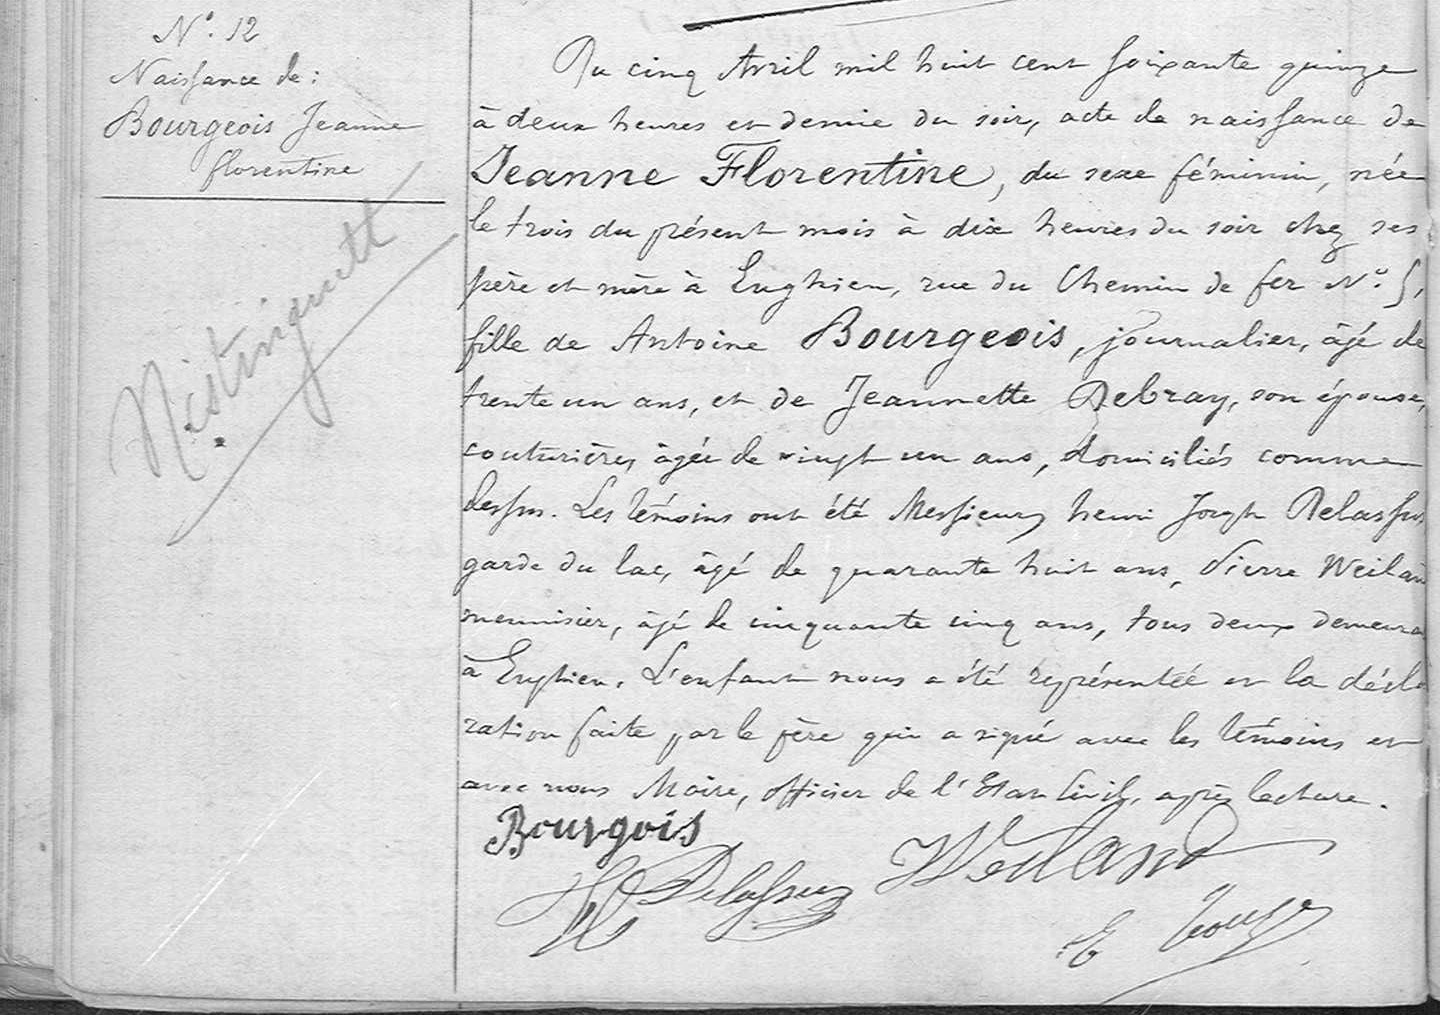 N° 12
Naissance de :
Bourgeois Jeanne
florentine
Mistinguett
Du cinq Avril mil huit cent soixante quinze
à deux heures et demie du soir, acte de naissance de
Jeanne Florentine, du sexe féminin, née
le trois du présent mois à dix heures du soir chez ses
père et mère à Enghien, rue du Chemin de fer N° 5,
fille de Antoine Bourgeois, journalier, âgé de
trente un ans, et de Jeannette Debray, son épouse,
couturière, âgée de vingt un ans, domiciliés comme
dessus. Les témoins ont été Messieurs henri Joseph Delassus
garde du lac, âgé de quarante huit ans, Pierre Weiland
menuisier, âgé de cinquante cinq ans, tous deux demeura
à Enghien. L'enfant nous a été représentée et la décla
ration faite par le père qui a signé avec les témoins et
avec nous Maire, officier de l'Etat Civil, après lecture.
Bourgois
Weiland
H Delassus
E